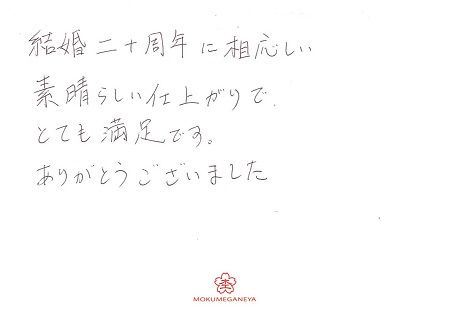 結婚二十周年に相応しい
素晴らしい仕上がりで、
とても満足です。
ありがとうございました
MOKUMEGANEYA